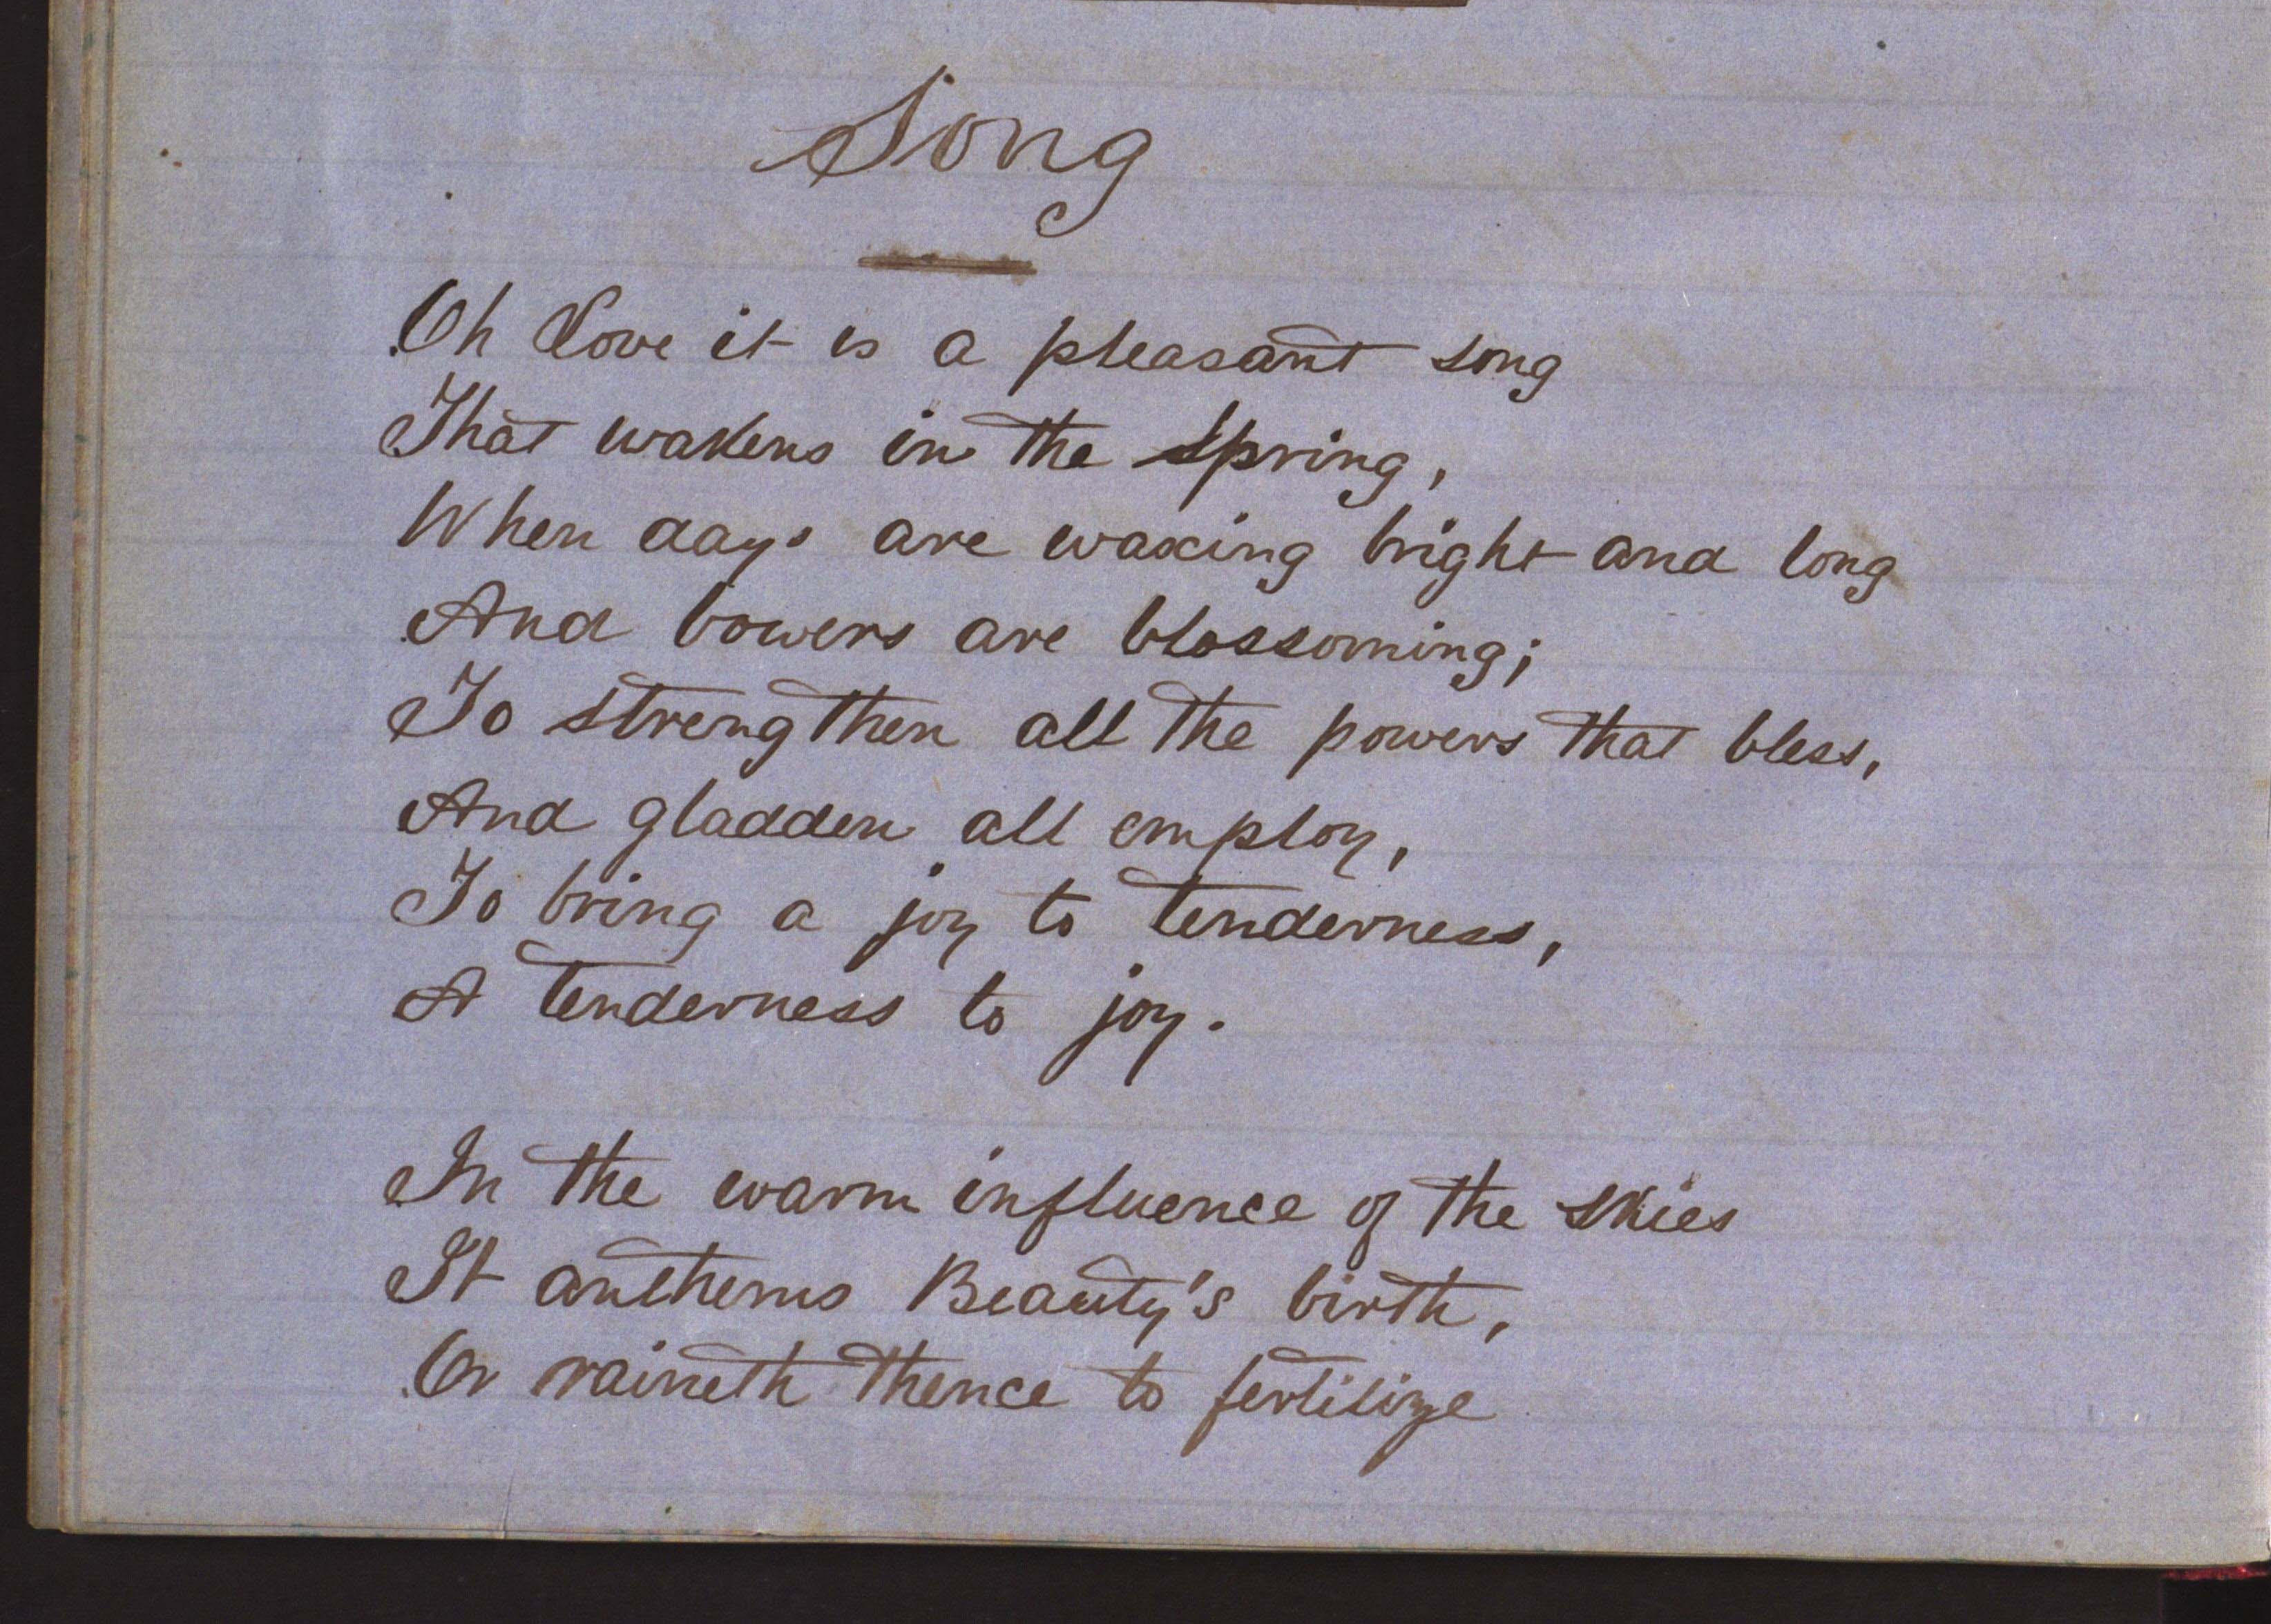 Song
Oh Love it is a pleasant song
That wakens in the Spring,
When days are waxing bright and long
And bowers are blossoming;
To strengthen all the powers that bless,
And gladden all employ,
To bring a joy to tenderness,
A tenderness to joy.
In the warm influence of the skies
It anthems Beauty's birth,
Or raineth thence to fertilize